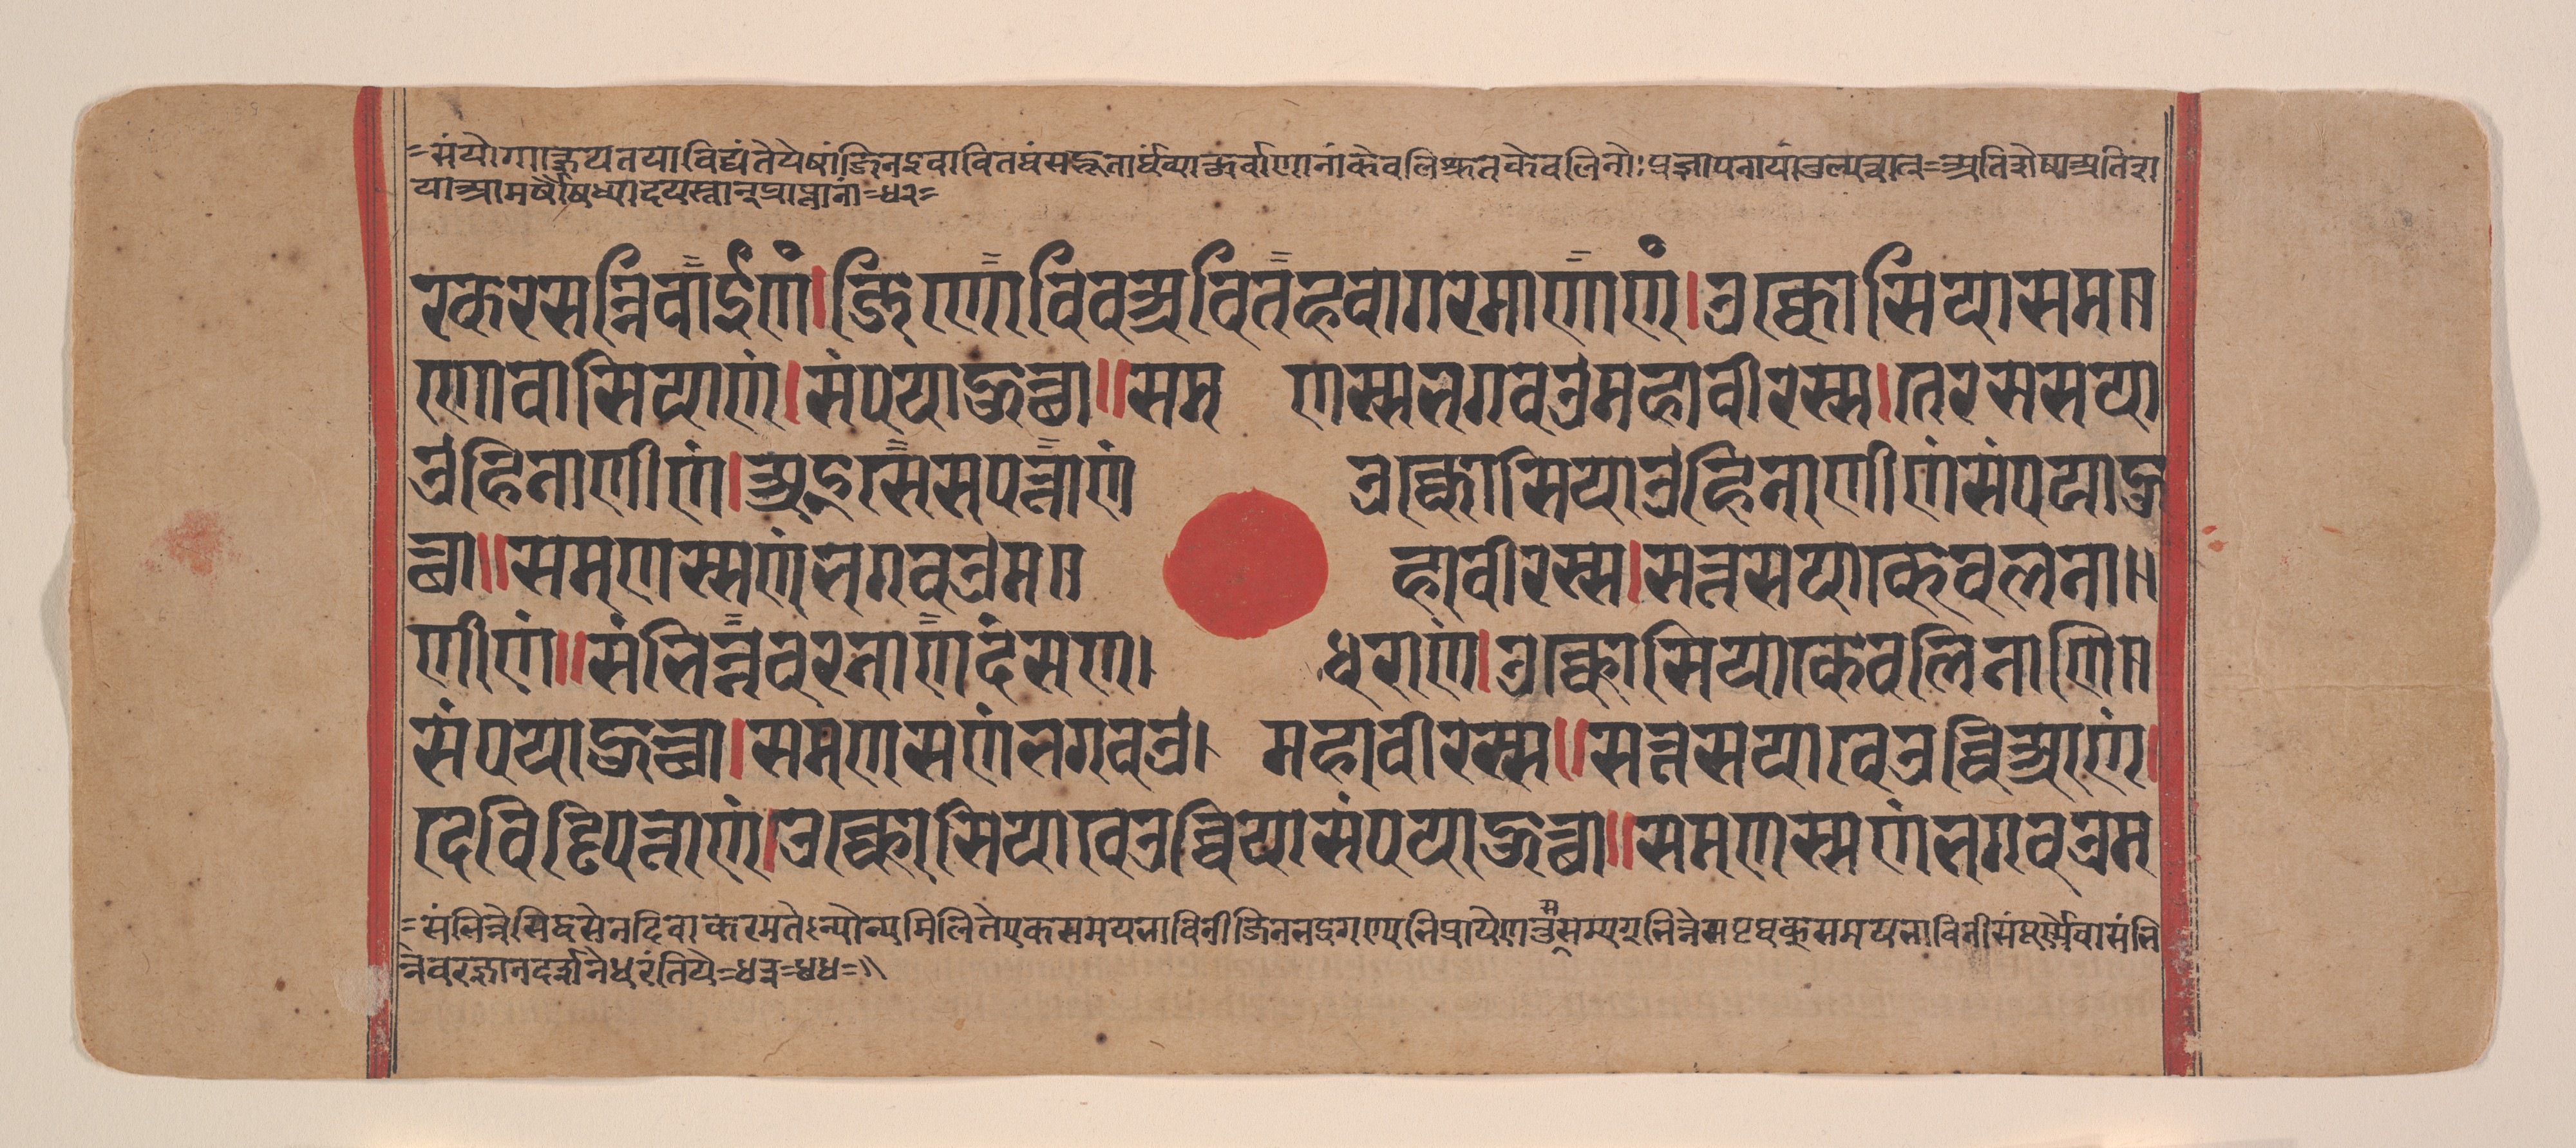 =संयोगाज्ञेयतयाविद्यंतेयेषांजिनइवावितथंसद्भूतार्थंव्याकुर्वाणानांकेवलिश्रुतकेवलिनोः प्रज्ञापनायांतुल्यत्वात्=अतिशेषाअतिश
याआमर्षौषध्यादयस्तान्प्राप्तानां=४२=
रकरसन्निवाईणं।जिणोविवअवितहवागरमाणाणं।उक्कोसियासम॥
णोवासियाणं।संपयाहुत्था॥सम णस्सभगवउमहावीरस्स।तेरससया
उहिनाणीणं।अइसेसपत्ताणं उक्कोसियाउहिनाणीणंसंपयाहु
त्था॥समणस्सणंभगवउम॥ हावीरस्स।सत्तसयाकेवलना॥
णीणं॥संभिन्नवरनाणदंसण। धराणं।उक्कोसियाकेवलिनाणि॥
संपयाहुत्था।समणसणंभगवउ। महावीरस्स॥सत्तसयावेउव्विआणं।
देविड्ढिपत्ताणं।उक्कोसियावेउव्वियासंपयाहुत्था॥समणस्सणंभगवउम
=संभिन्नेसिद्धसेनदिवाकरमतेऽन्योन्यमिलितेएकसमयभाविनीजिनभद्रगण्यभिप्रायेणतुसम्यग्भिन्ने समयभाविनीसंपूर्णेवासंभि
न्नेवरज्ञानदर्शनेधरंतिये=४३=४४=॥